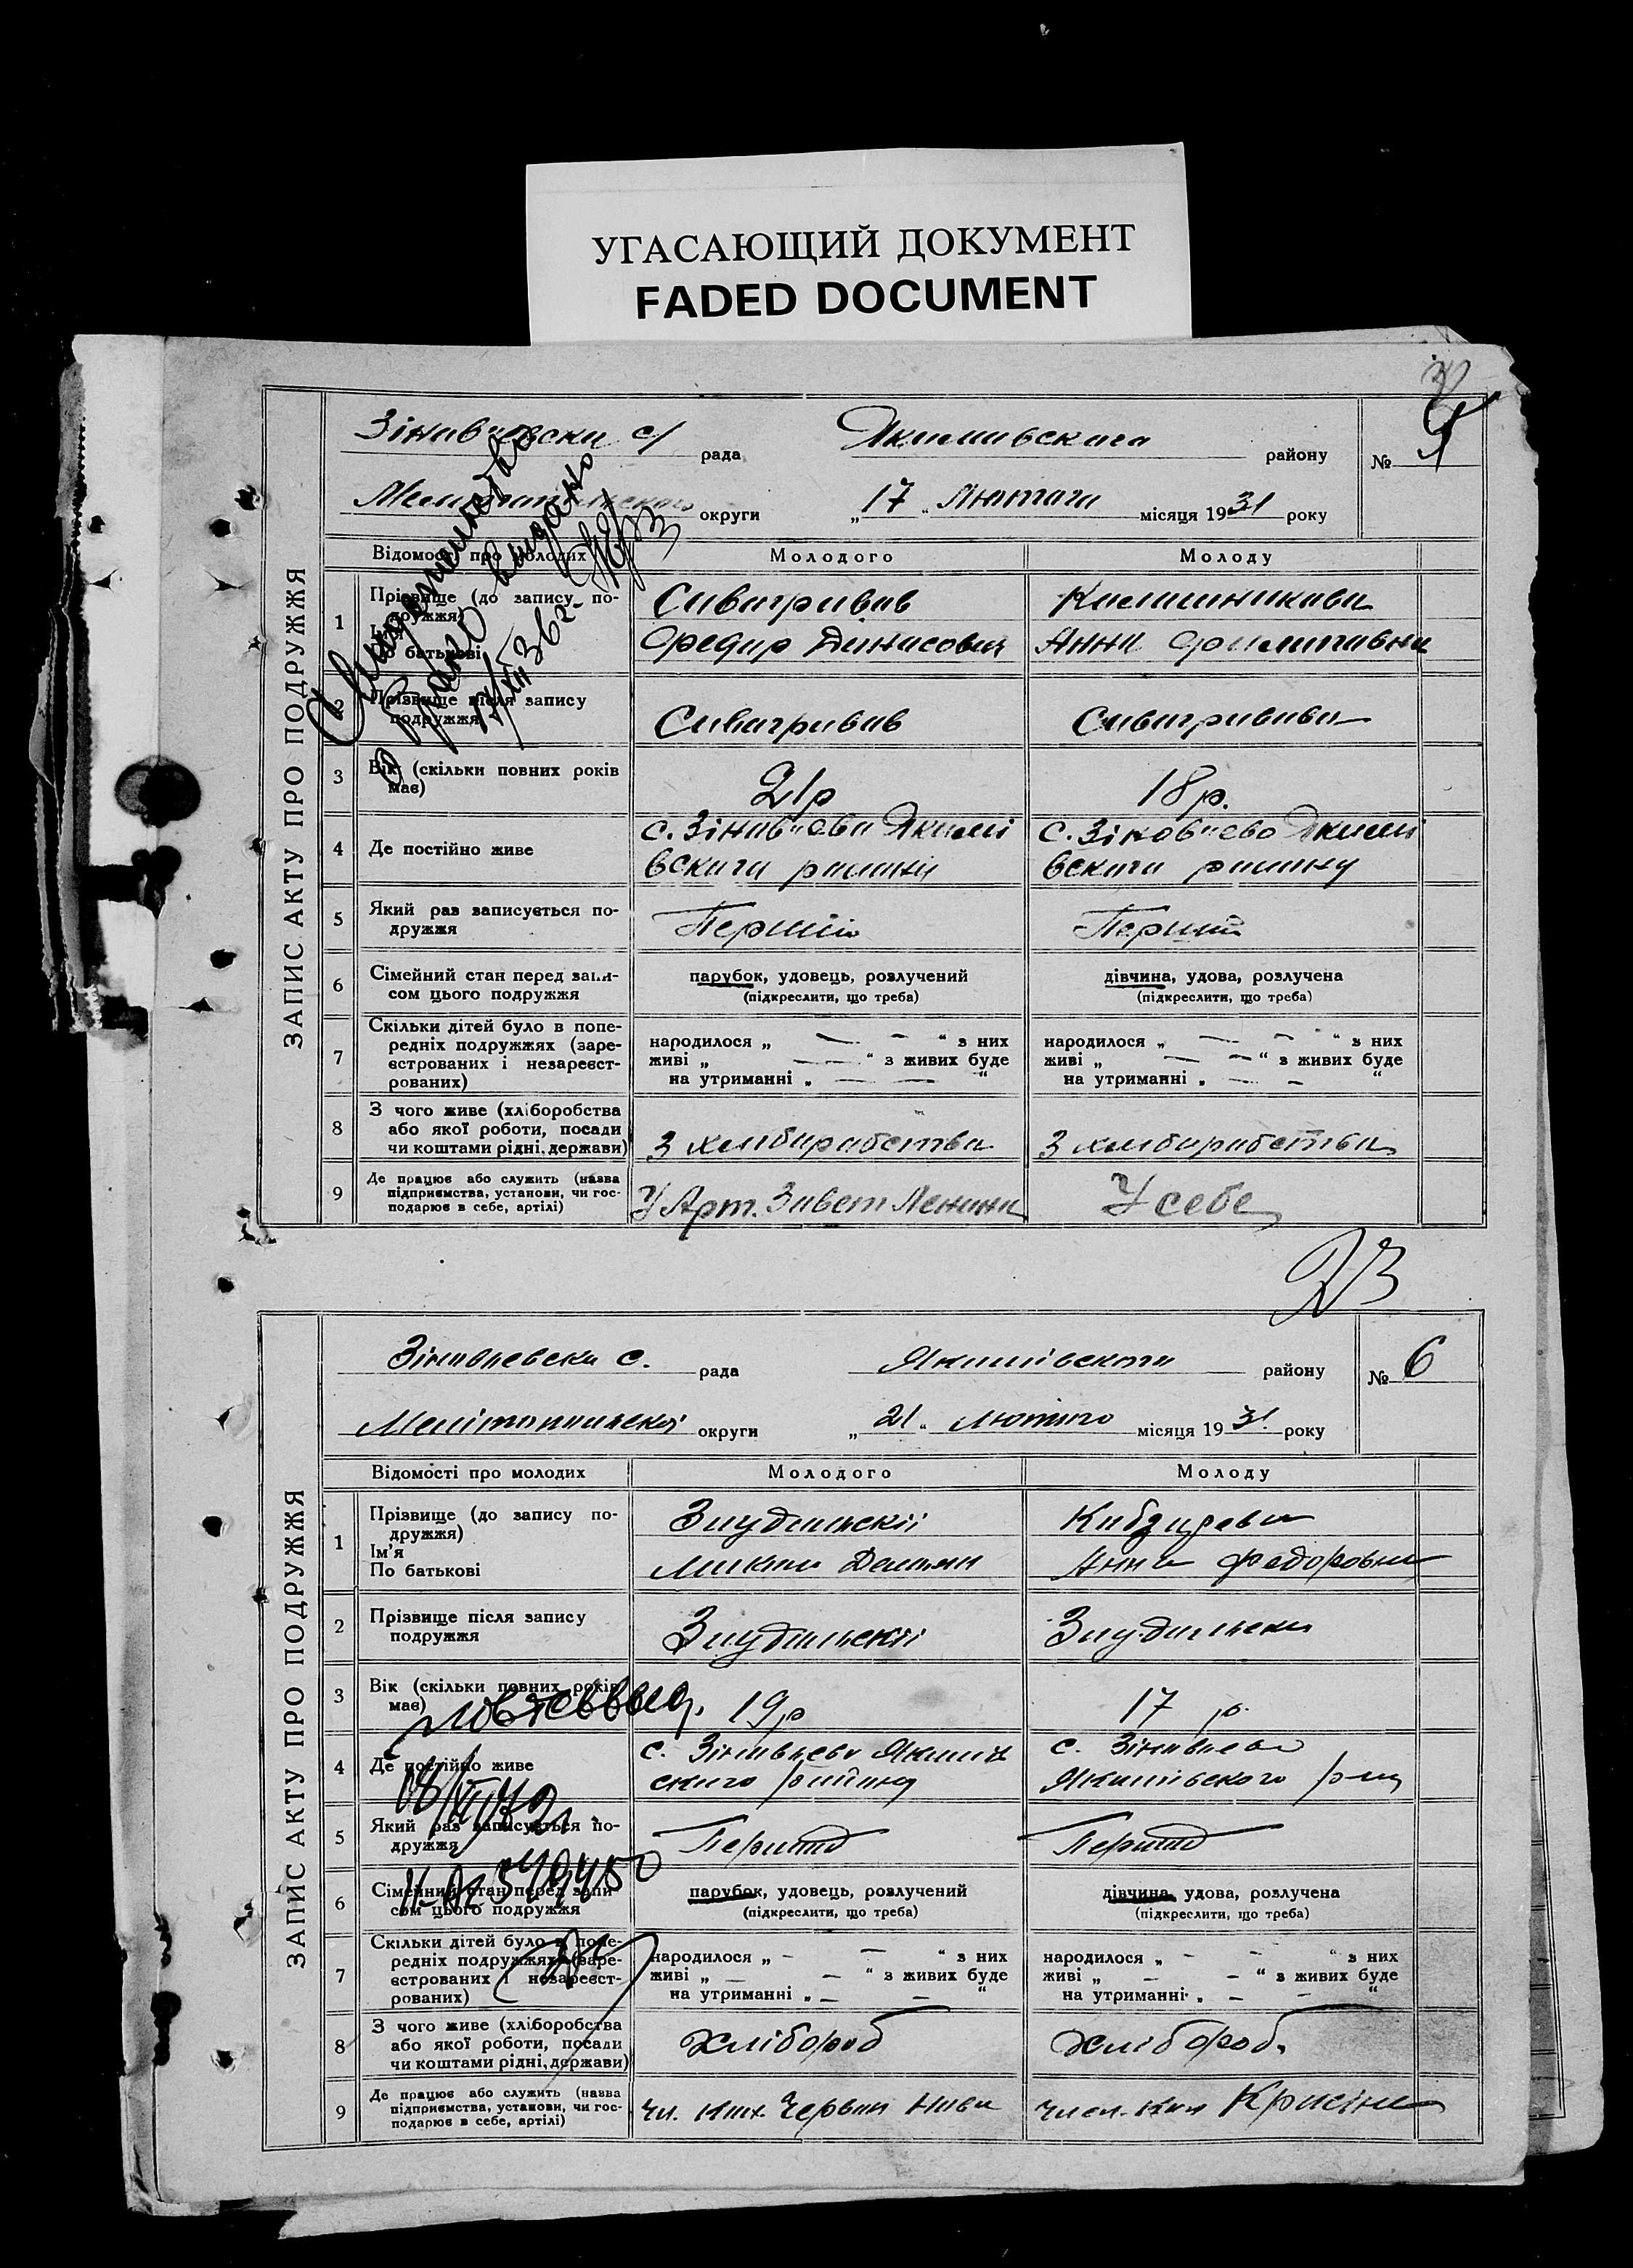 УГАСАЮЩИЙ ДОКУМЕНТ
FADED DOCUMENT
ЗАПИС АКТУ ПРО ПОДРУЖЖЯ
с/ рада Якимивского району №
округи „17“ Лютого місяця 1931 року
Відомості про молодих Молодого Молоду
1 Прізвище (до запису по-
дружжя)
Ім'я
По батькові
Сивогривов
Федир Динисович
Анна Филипивна
2 Прізвище після запису
подружжя
Сивогривов Сивогривова
3 Вік (скільки повних років
має)
21р 18р.
4 Де постійно живе
с. Зіновʼево Якимі
вского району
с. Зіновʼево Якими
вского району
5 Який раз записується по-
дружжя
Перший Перший
6 Сімейний стан перед запи-
сом цього подружжя
парубок, удовець, розлучений
(підкреслити, що треба)
дівчина, удова, розлучена
(підкреслити, що треба)
7 Скільки дітей було в попе-
редніх подружжях (заре-
єстрованих і незареєст-
рованих)
народилося „ — — “ з них
живі „ — — “ з живих буде
на утриманні „ — — “
народилося „ — — “ з них
живі „ — — “ з живих буде
на утриманні „ — — “
8 З чого живе (хліборобства
або якої роботи, посади
чи коштами рідні, держави)
З хлиборобства З хлиборобства
9 Де працює або служить (назва
підприємства, установи, чи гос-
подарює в себе, артілі)
У Арт. Завет Ленина У себе
23
ЗАПИС АКТУ ПРО ПОДРУЖЖЯ
с. рада Якимівского району № 6
Мелітопильскої округи „21“ Лютого місяця 1931 року
Відомості про молодих Молодого Молоду
1 Прізвище (до запису по-
дружжя)
Ім'я
По батькові
Анна Федоровна
2 Прізвище після запису
подружжя
3 Вік (скільки повних років
має)
19р 17 р.
4 Де постійно живе
с. Зіновьево Якимів
ского району
с. Зіновьево
Якимівського р-ну
5 Який раз записується по-
дружжя
Перший Перший
6 Сімейний стан перед запи-
сом цього подружжя
парубок, удовець, розлучений
(підкреслити, що треба)
дівчина, удова, розлучена
(підкреслити, що треба)
7 Скільки дітей було в попе-
редніх подружжях (заре-
єстрованих і незареєст-
рованих)
народилося „ — — “ з них
живі „ — — “ з живих буде
на утриманні „ — — “
народилося „ — — “ з них
живі „ — — “ з живих буде
на утриманні „ — — “
8 З чого живе (хліборобства
або якої роботи, посади
чи коштами рідні, держави)
Хлібороб Хлібороб.
9 Де працює або служить (назва
підприємства, установи, чи гос-
подарює в себе, артілі)
Чл. Червон Нива